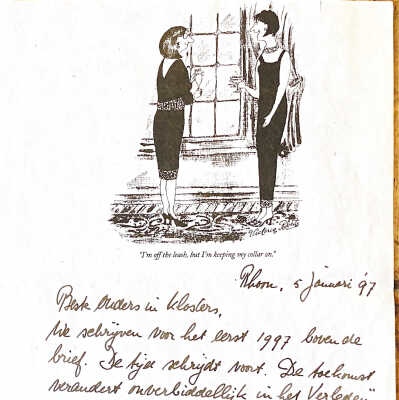 "I'm off the leash, but I'm keeping my collar on."
Rhoon, 5 januari '97
Beste ouders in Klosters,
We schrijven voor het eerst 1997 boven de
brief. De tijd schrijdt voort. De toekomst
verandert onverbiddellijk in het Verleden